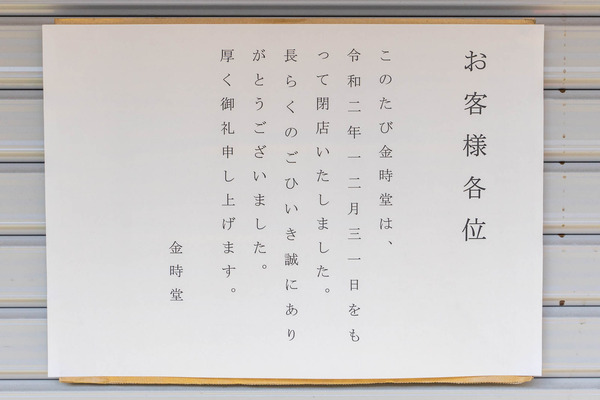 お客様各位
このたび金時堂は、
令和二年一二月三一日をも
って閉店いたしました。
長らくのごひいき誠にあり
がとうございました。
厚く御礼申し上げます。
金時堂